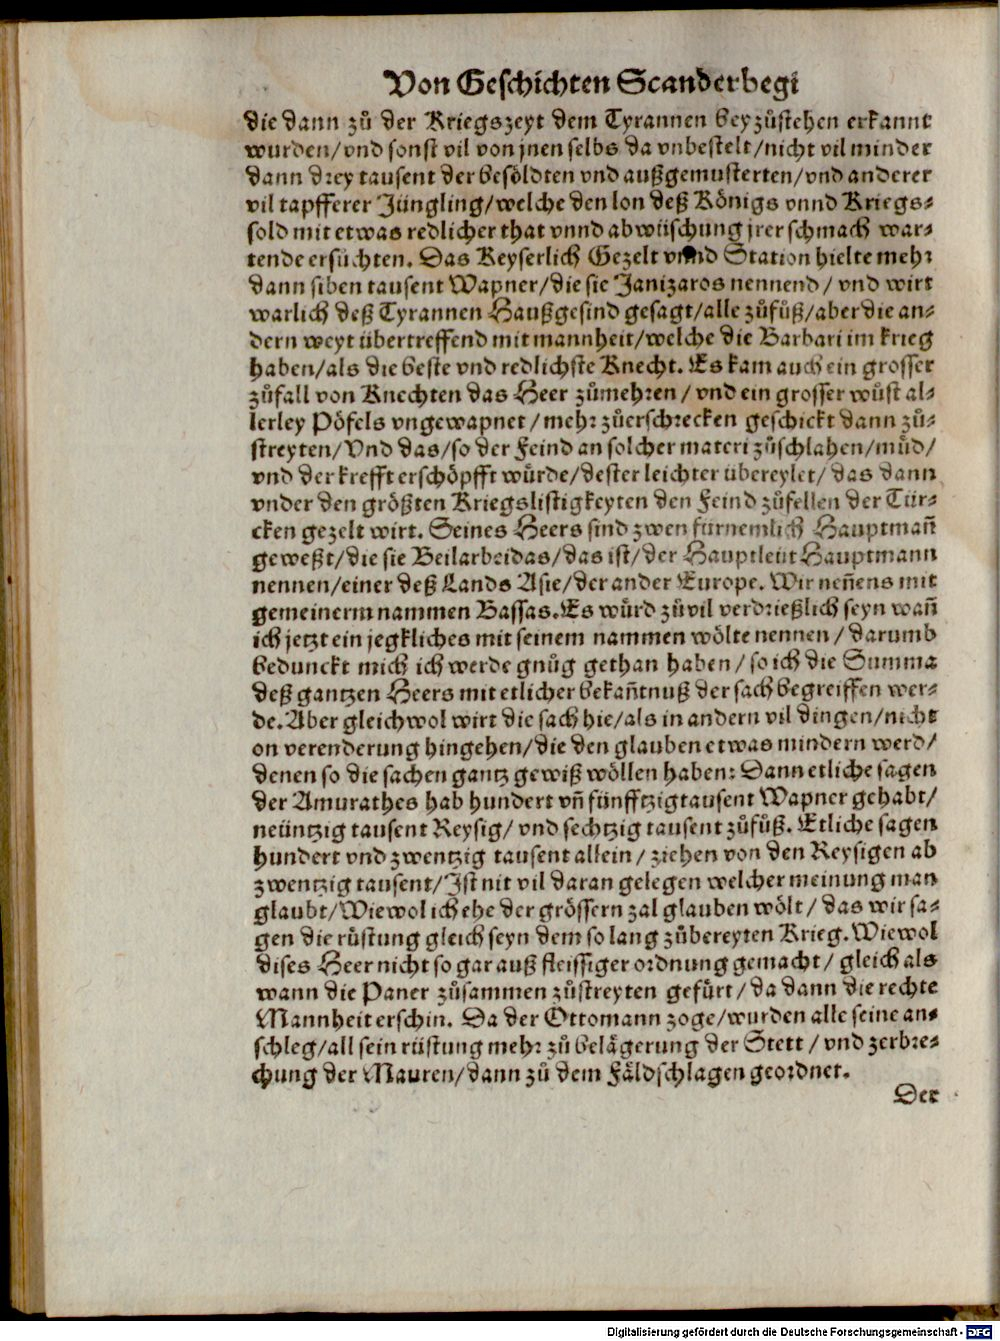 Von Geschichten Scanderbegi
die dann zů der Kriegszeyt dem Tyrannen beyzůstehen erkannt
wurden/vnd sonst vil von jnen selbs da vnbestelt/nicht vil minder
dann drey tausent der besöldten vnd außgemusterten/vnd anderer
vil tapfferer Jüngling/welche den lon deß Königs vnnd Kriegs-
sold mit etwas redlicher that vnnd abwüschung jrer schmach war-
tende ersůchten. Das Keyserlich Gezelt vnnd Station hielte mehr
dann siben tausent Wapner/die sie Janizaros nennend/ vnd wirt
warlich deß Tyrannen Haußgesind gesagt/alle zůfůß/aber die an-
dern weyt übertreffend mit mannheit/welche die Barbari im krieg
haben/als die beste vnd redlichste Knecht. Es kam auch ein grosser
zůfall von Knechten das Heer zůmehren / vnd ein grosser wůst al-
lerley Pöfels vngewapnet / mehr zůerschrecken geschickt dann zů-
streyten/ Vnd das/so der Feind an solcher materi zůschlahen/můd/
vnd der krefft erschöpfft würde/dester leichter übereylet/ das dann
vnder den größten Kriegslistigkeyten den Feind zůfellen der Tür-
cken gezelt wirt. Seines Heers sind zwen fürnemlich Hauptmañ
geweßt/die sie Beilarbeidas/das ist/der Hauptleüt Hauptmann
nennen/einer deß Lands Asie/der ander Europe. Wir neñens mit
gemeinerm nammen Bassas. Es würd zůvil verdrießlich seyn wañ
ich jetzt ein jegkliches mit seinem nammen wölte nennen / darumb
bedunckt mich ich werde gnůg gethan haben/ so ich die Summa
deß gantzen Heers mit etlicher bekañtnuß der sach begreiffen wer-
de. Aber gleichwol wirt die sach hie/als in andern vil dingen/nicht
on verenderung hingehen/die den glauben etwas mindern werd/
denen so die sachen gantz gewiß wöllen haben: Dann etliche sagen
der Amurathes hab hundert vñ fünfftzig tausent Wapner gehabt/
neüntzig tausent Reysig/ vnd sechtzig tausent zůfůß. Etliche sagen
hundert vnd zwentzig tausent allein / ziehen von den Reysigen ab
zwentzig tausent/ Jst nit vil daran gelegen welcher meinung man
glaubt/ Wiewol ich ehe der grössern zal glauben wölt / das wir sa-
gen die rüstung gleich seyn dem so lang zůbereyten Krieg. Wiewol
dises Heer nicht so gar auß fleissiger ordnung gemacht / gleich als
wann die Paner zůsammen zůstreyten gefürt / da dann die rechte
Mannheit erschin. Da der Ottomann zoge/wurden alle seine an-
schleg/all sein rüstung mehr zů belägerung der Stett / vnd zerbre-
chung der Mauren/dann zů dem Fäldschlagen geordnet.
Der
Digitalisierung gefördert durch die Deutsche Forschungsgemeinschaft - DFG